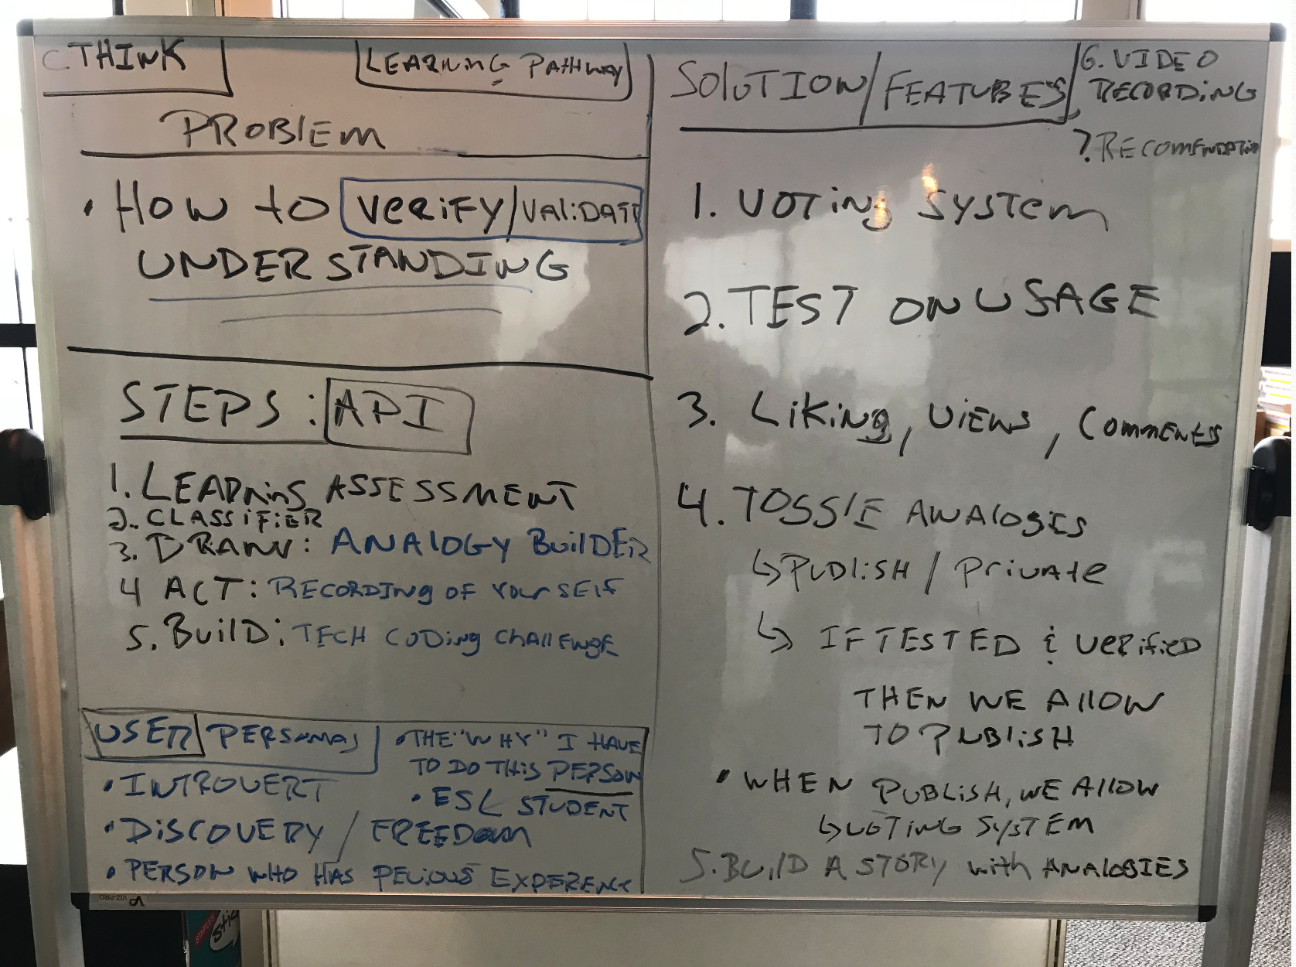 C. THINK
LEARNING PATHWAY
PROBLEM
• HOW to VERIFY/VALIDATE
UNDERSTANDING
STEPS: API
1. LEARNING ASSESSMENT
2. CLASSIFIER
3. DRAW: ANALOGY BUILDER
4 ACT: RECORDING OF YOURSELF
5. BUILD: TECH CODING CHALLENGE
USER PERSONAS
• INTROVERT
• DISCOVERY / FREEDOM
• PERSON WHO HAS PEVIOUS EXPERENC
• THE "WHY" I HAVE
TO DO THIS PERSON
• ESL STUDENT
SOLUTION/FEATURES
6. VIDEO
RECORDING
7. RECOMENDATION
1. VOTING SYSTEM
2. TEST ON USAGE
3. LIKING, VIEWS, COMMENTS
4. TOGGLE ANALOGIES
↳ PUBLISH / PRIVATE
↳ IF TESTED & VERIFIED
THEN WE ALLOW
TO PUBLISH
• WHEN PUBLISH, WE ALLOW
↳ VOTING SYSTEM
5. BUILD A STORY with ANALOGIES